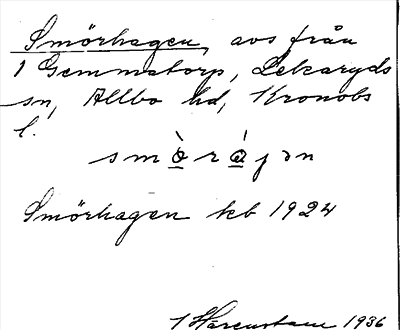 Smörhagen, avs från
1 Gemmatorp, Lekaryds
sn, Allbo hd, Kronobs
l.
smò̱rá̱jən
Smörhagen kb 1924
1936